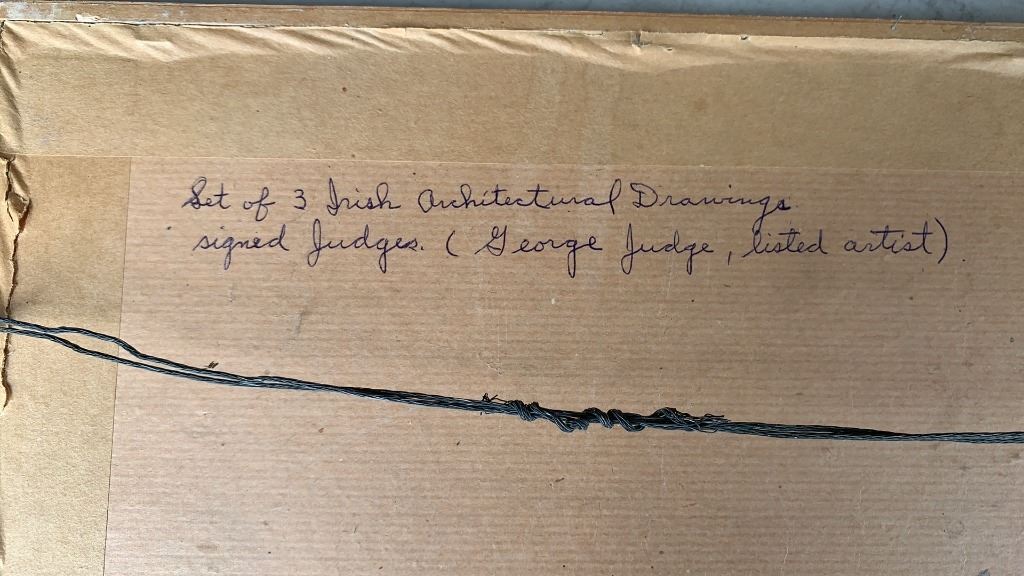 Set of 3 Irish Architectural Drawings.
signed Judges. (George Judge, listed artist)